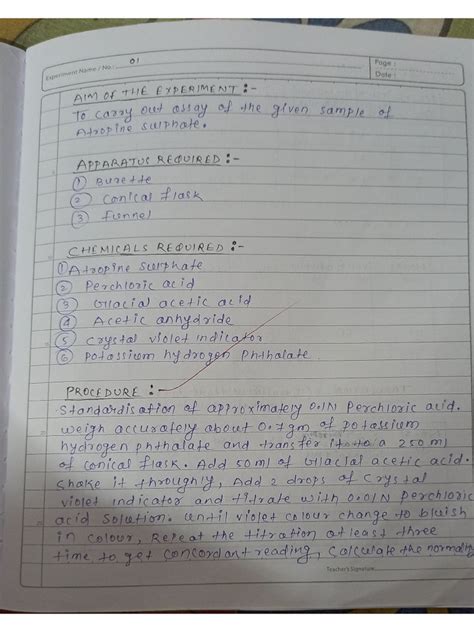 Experiment Name / No.: 01
Page :
Date :
AIM OF THE EXPERIMENT :-
To carry out assay of the given sample of
Atropine sulphate.
APPARATUS REQUIRED :-
① Burette
② Conical flask
③ Funnel
CHEMICALS REQUIRED :-
① Atropine sulphate
② Perchloric acid
③ Glacial acetic acid
④ Acetic anhydride
⑤ Crystal violet indicator
⑥ Potassium hydrogen Phthalate
PROCEDURE :-
Standardisation of approximately 0.1N Perchloric acid.
weigh accurately about 0.7gm of potassium
hydrogen phthalate and transfer it to a 250 ml
of conical flask. Add 50 ml of Glacial acetic acid.
Shake it throughly, Add 2 drops of Crystal
violet indicator and titrate with 0.01N Perchloric
acid solution. until violet colour change to bluish
in colour, Repeat the titration at least three
time to get concordant reading, Calculate the normality
Teacher's Signature